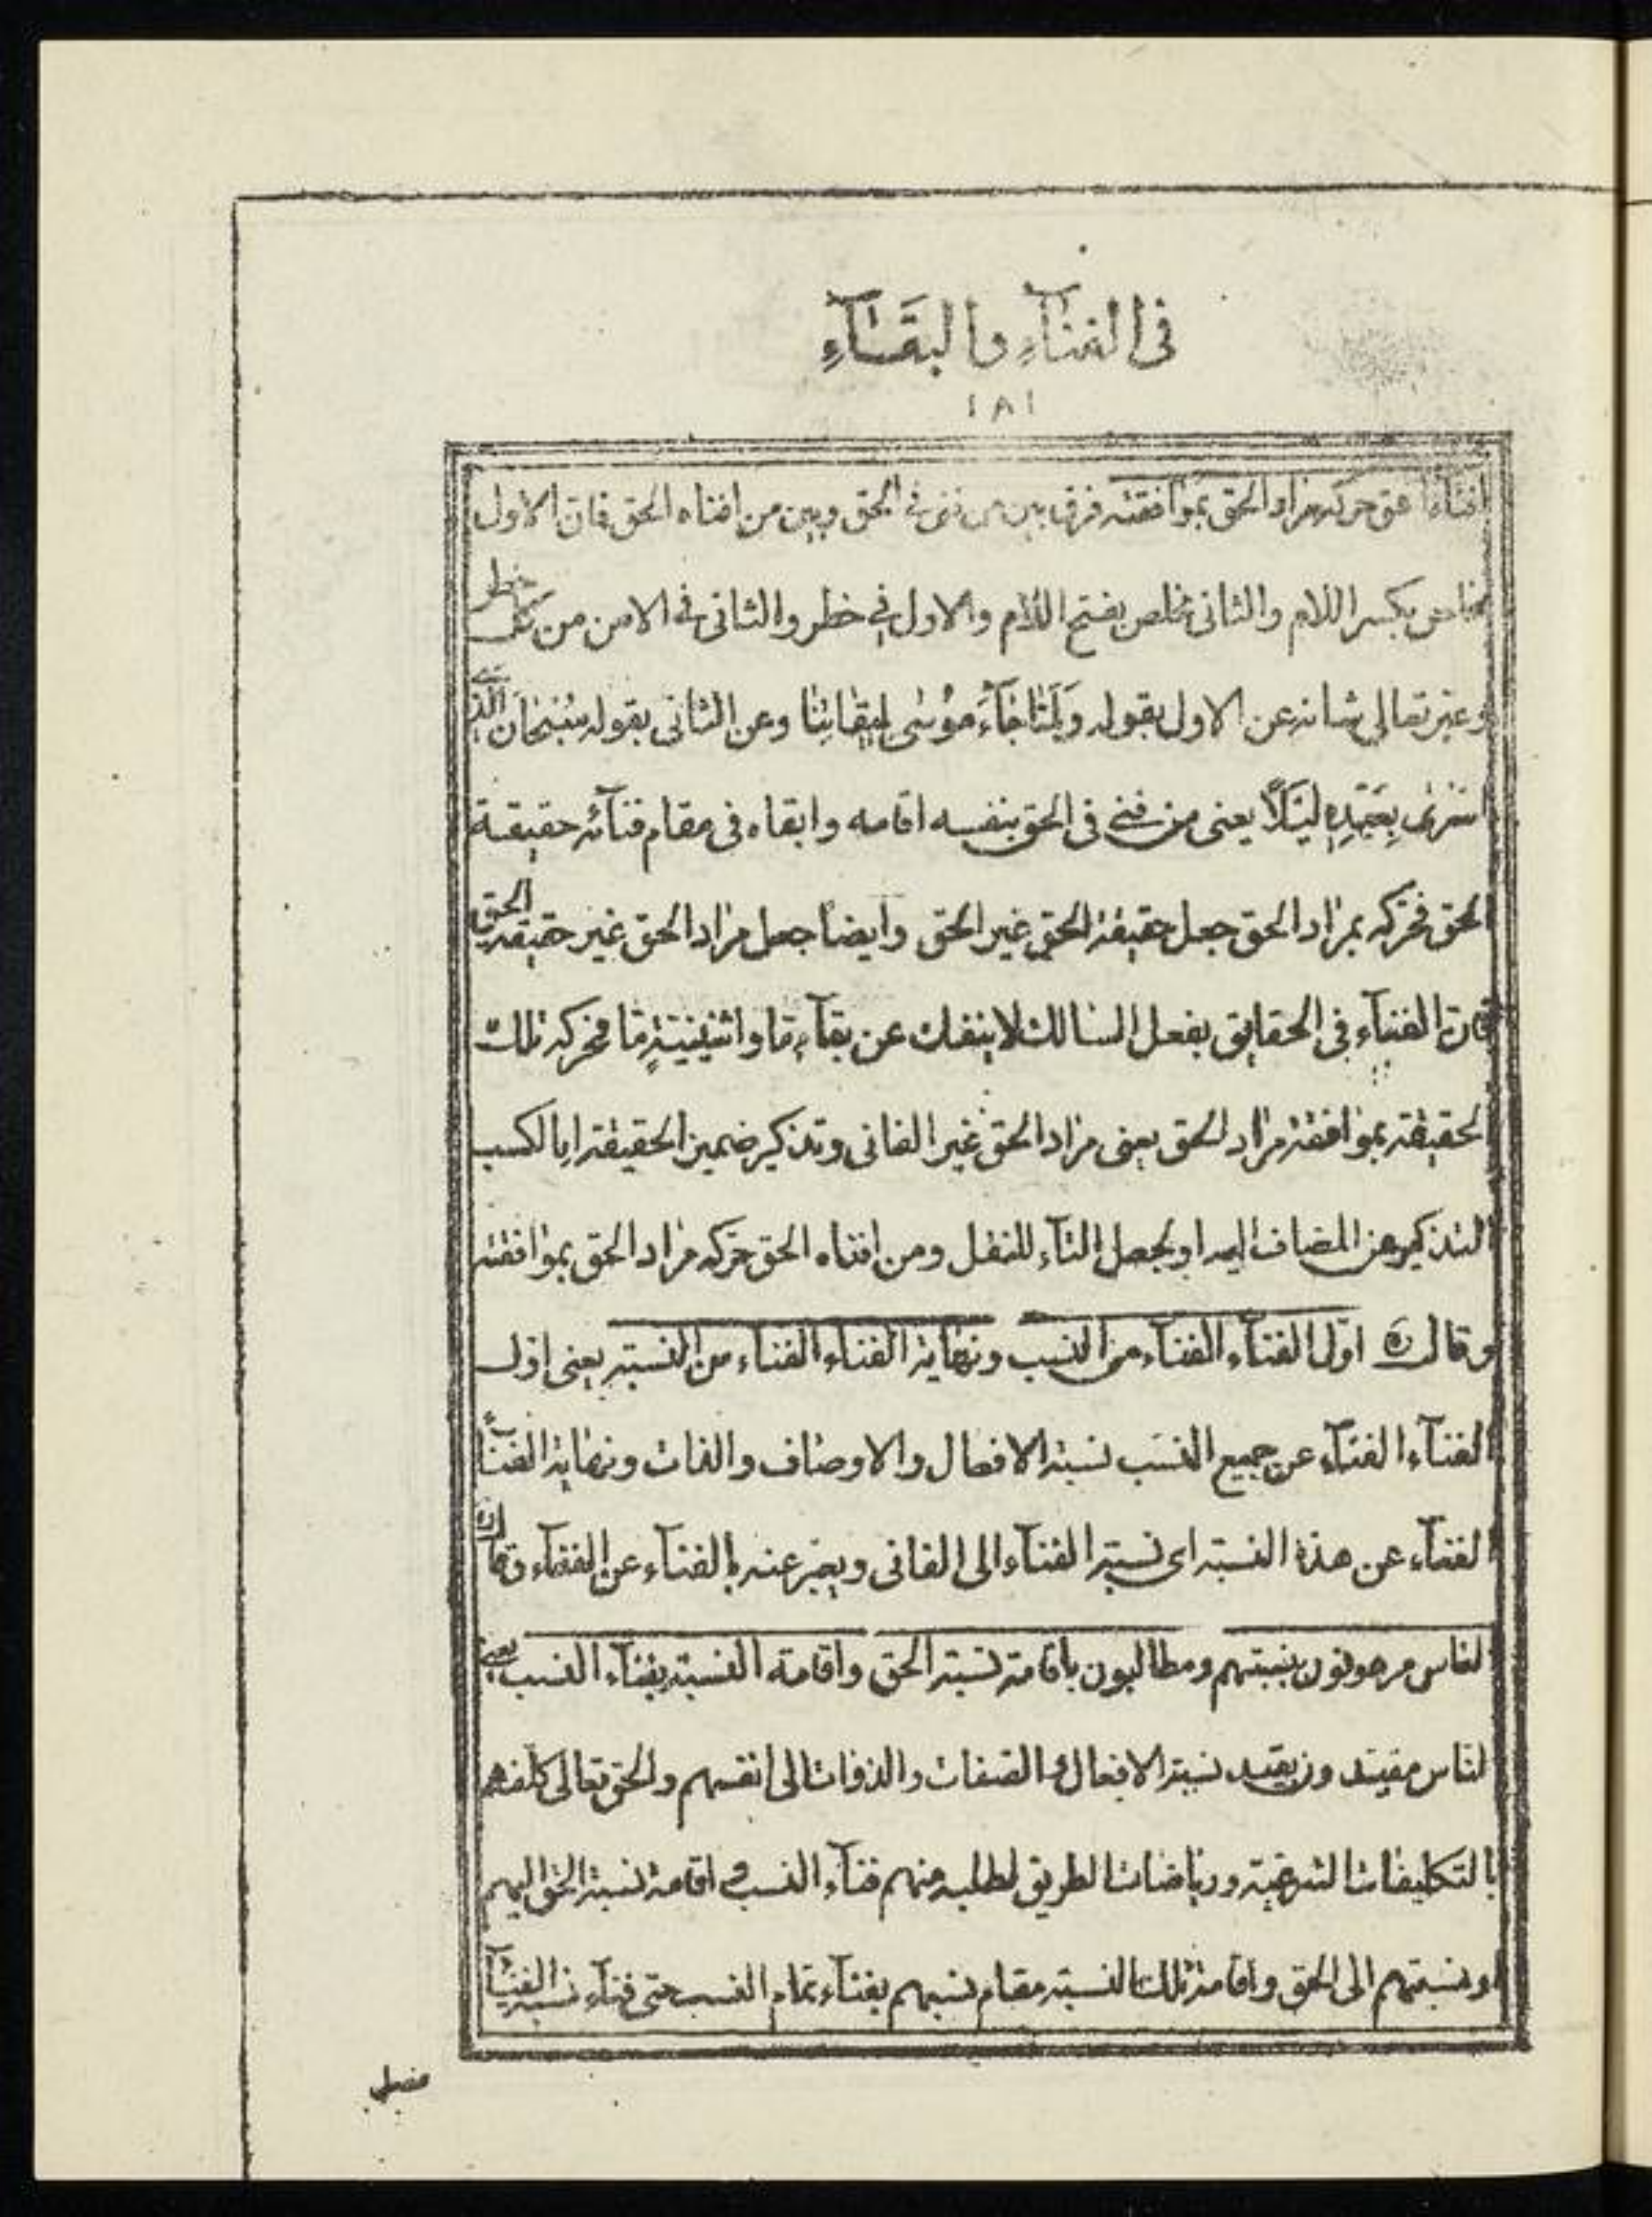 فى الفنآءِ والبقَآءِ
١٨١
افناه الحق حركه مراد الحق بموافقته فرق بين من فنى فى الحق وبين من افناه الحق فان الاول
مخلص بكسر اللام والثانى مخلص بفتح اللام والاول فى خطر والثانى فى الامن من كل خطر
وعبر تعالى شانه عن الاول بقوله وَلَمّٰا جٰآءَ مُوسٰى لِمِيقٰاتِنٰا وعن الثانى بقوله سُبْحٰانَ الَّذى
اَسْرىٰ بِعَبْدِهِ لَيْلًا يعنى من فنى فى الحق بنفسه اقامه وابقاه فى مقام فنآئه حقيقة
الحق فحركه بمراد الحق جعل حقيقة الحق غير الحق وايضا جعل مراد الحق غير حقيقة الحق
فان الفناء فى الحقايق بفعل السالك لا ينفك عن بقآءٍ ما واثنينيّةٍ ما فحركه تلك
الحقيقة بموافقة مراد الحق يعنى مراد الحق غير الفانى وتذكير ضمير الحقيقة اما لكسب
التذكير من المضاف اليه او لجعل التآء للنقل ومن افناه الحق حركه مراد الحق بموافقته
وقال ره اوّل الفنآء الفنآء من النسب ونهاية الفناء الفناء من النسبة يعنى اول
الفنآء الفنآء عن جميع النسب نسبة الافعال والاوصاف والذات ونهاية الفنآء
الفنآء عن هذه النسبة اى نسبة الفناء الى الفانى ويعبر عنه بالفناء عن الفنآء وقال ره
الناس مرهونون بنسبتهم ومطالبون باقامة نسبة الحق واقامة النسبة بفناء النسب يعنى
الناس مقيدون بقيد نسبة الافعال والصفات والذوات الى انفسهم والحق تعالى كلفهم
بالتكليفات الشرعية ورياضات الطريق لطلبه منهم فنآء النسب واقامة نسبة الحق اليهم
او نسبتهم الى الحق واقامة تلك النسبة مقام نسبهم بفنآء تمام النسب حتى فنآء نسبة الفنآء